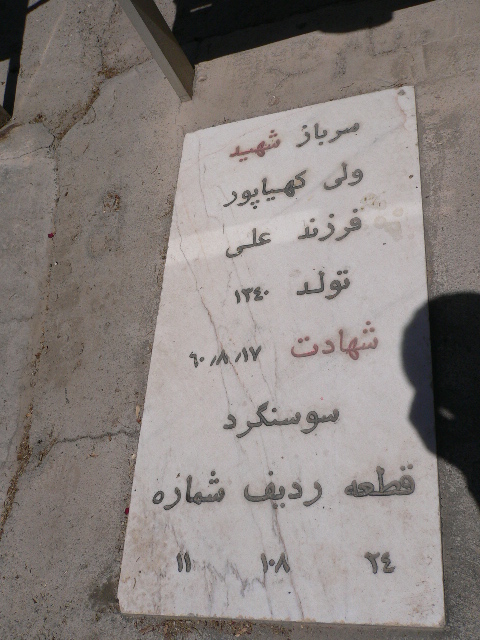 سرباز شهید
ولی کهیاپور
فرزند علی
تولد ۱۳٤۰
شهادت ٦۰٫۸٫۱۷
سوسنگرد
قطعه ردیف شماره
۲٤ ۱۰۸ ۱۱